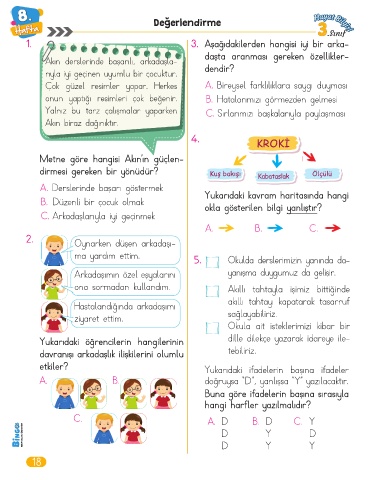 8.
Hafta
Değerlendirme
Hayat Bilgisi
3. Sınıf
1.
Akın derslerinde başarılı, arkadaşla-
rıyla iyi geçinen uyumlu bir çocuktur.
Çok güzel resimler yapar. Herkes
onun yaptığı resimleri çok beğenir.
Yalnız bu tarz çalışmalar yaparken
Akın biraz dağınıktır.
Metne göre hangisi Akın'ın güçlen-
dirmesi gereken bir yönüdür?
A. Derslerinde başarı göstermek
B. Düzenli bir çocuk olmak
C. Arkadaşlarıyla iyi geçinmek
2.
Oynarken düşen arkadaşı-
ma yardım ettim.
Arkadaşımın özel eşyalarını
ona sormadan kullandım.
Hastalandığında arkadaşımı
ziyaret ettim.
Yukarıdaki öğrencilerin hangilerinin
davranışı arkadaşlık ilişkilerini olumlu
etkiler?
A.
B.
C.
BİNGO
18
3. Aşağıdakilerden hangisi iyi bir arka-
daşta aranması gereken özellikler-
dendir?
A. Bireysel farklılıklara saygı duyması
B. Hatalarımızı görmezden gelmesi
C. Sırlarımızı başkalarıyla paylaşması
4.
KROKİ
Kuş bakışı
Kabataslak
Ölçülü
Yukarıdaki kavram haritasında hangi
okla gösterilen bilgi yanlıştır?
A.
B.
C.
5.
Okulda derslerimizin yanında da-
yanışma duygumuz da gelişir.
Akıllı tahtayla işimiz bittiğinde
akıllı tahtayı kapatarak tasarruf
sağlayabiliriz.
Okula ait isteklerimizi kibar bir
dille dilekçe yazarak idareye ile-
tebiliriz.
Yukarıdaki ifadelerin başına ifadeler
doğruysa "D", yanlışsa "Y" yazılacaktır.
Buna göre ifadelerin başına sırasıyla
hangi harfler yazılmalıdır?
A. D B. D C. Y
D Y D
D Y Y